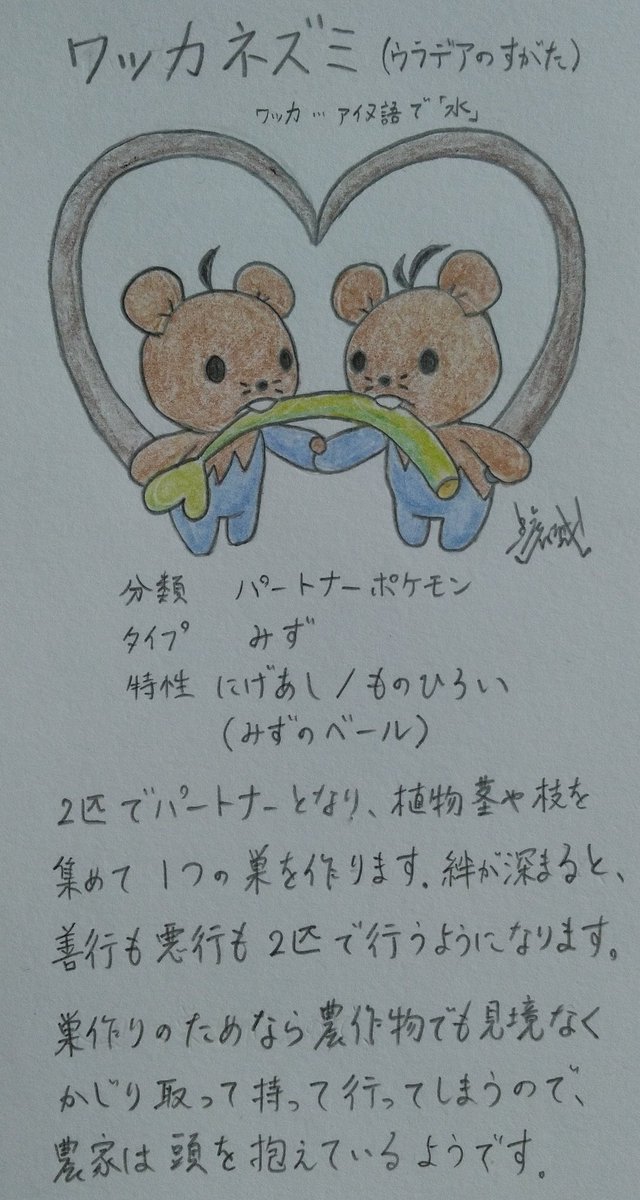 ワッカネズミ(ウラデアのすがた)
ワッカ…アイヌ語で「水」
分類 パートナーポケモン
タイプ みず
特性 にげあし/ものひろい
(みずのベール)
2匹でパートナーとなり、植物茎や枝を
集めて1つの巣を作ります。絆が深まると、
善行も悪行も2匹で行うようになります。
巣作りのためなら農作物でも見境なく
かじり取って持って行ってしまうので、
農家は頭を抱えているようです。